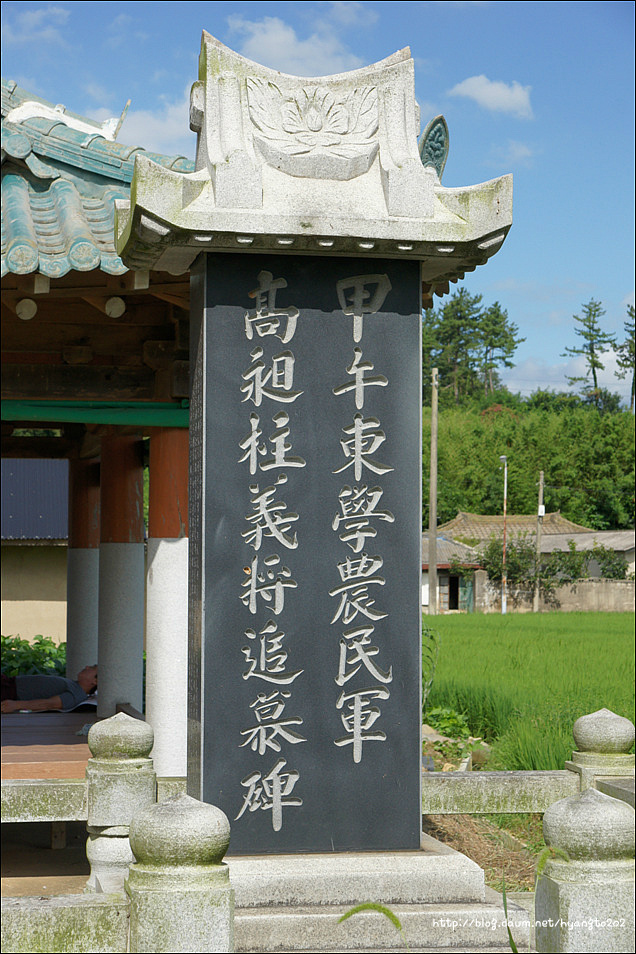 甲午東學農民軍
高昶柱義將追慕碑
http://blog.daum.net/hyangto202